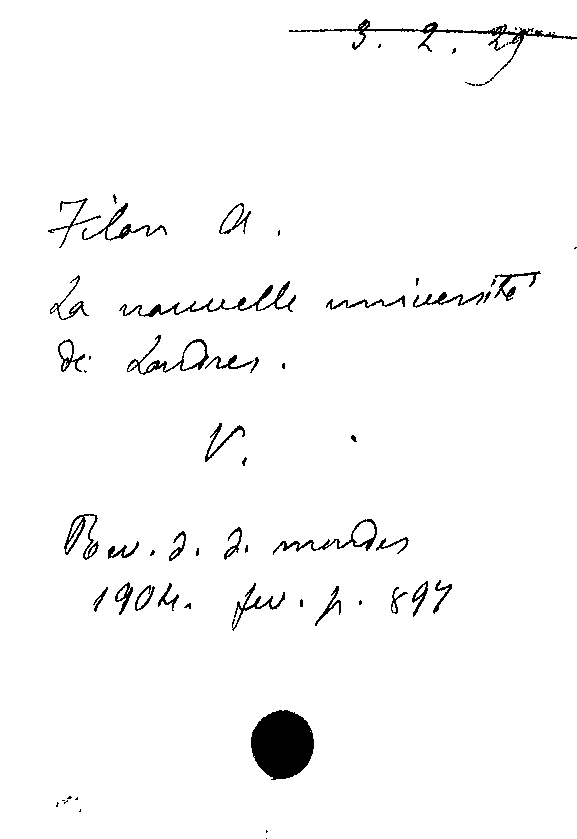 3. 2. 29
Filon A.
La nouvelle université
de Londres.
V.
Rev. d. d. mondes
1904. fev. p. 897